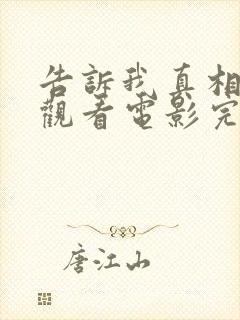 告訴我真相
觀看電影完
唐江山